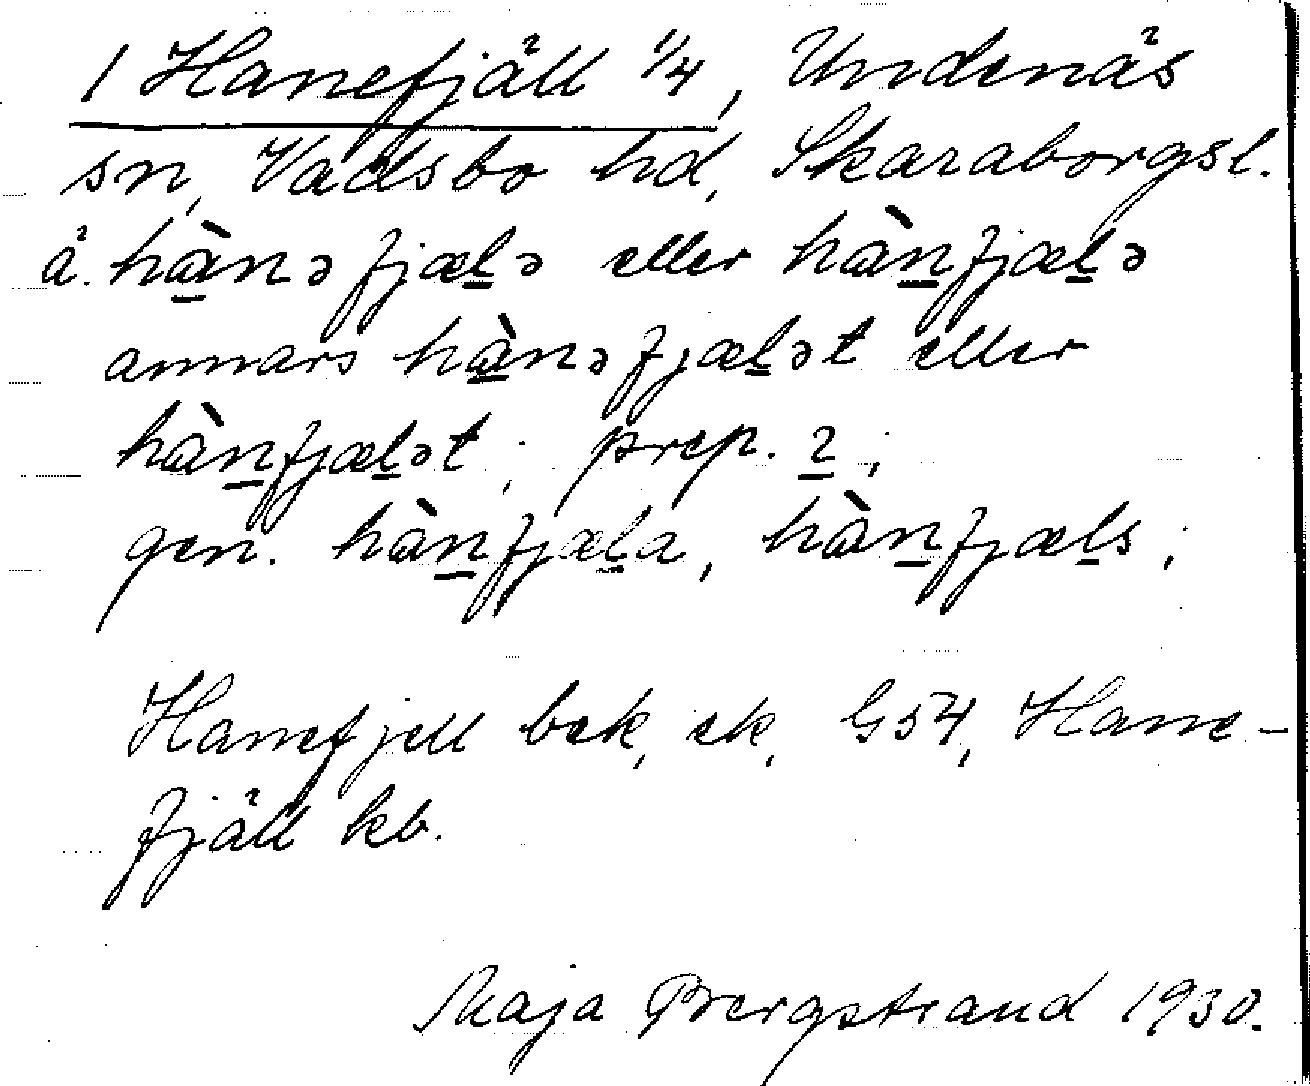 1 Hanefjäll 1/4, Undenäs
sn, Vadsbo hd, Skaraborgsl.
ä. hànə fjælə eller hànfjælə
annars hànəfjælət eller
hànfjælət ; prep. 2 ;
gen. hànfjæla, hànfjæls ;
Hanefjell bek, ek, G54, Hane-
fjäll kb.
Maja Bergstrand 1930.